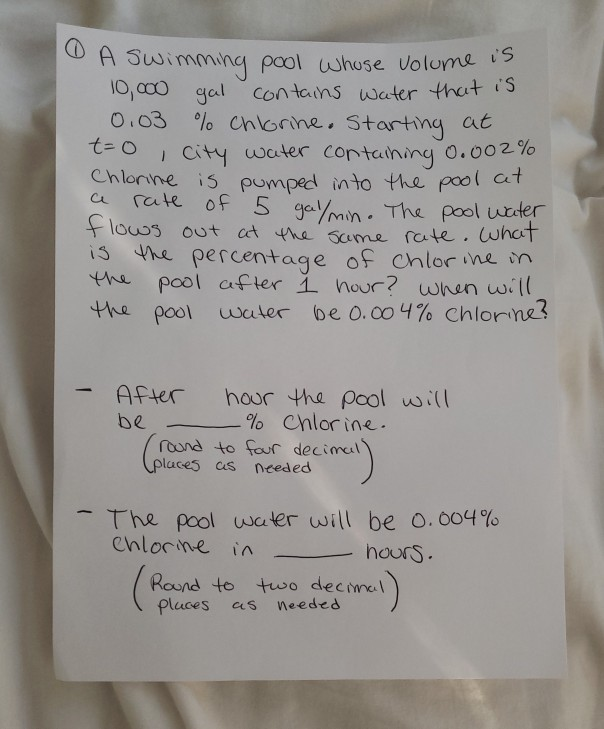 ① A Swimming pool whose Volume is
10,000 gal contains water that is
0.03 % Chlorine. Starting at
t=0, City water containing 0.002%
Chlorine is pumped into the pool at
a rate of 5 gal/min. The pool water
flows out at the same rate. What
is the percentage of Chlorine in
the pool after 1 hour? When will
the pool water be 0.004% Chlorine?
- After hour the pool will
be ____ % Chlorine.
(round to four decimal
places as needed)
- The pool water will be 0.004%
Chlorine in ____ hours.
(Round to two decimal
places as needed)